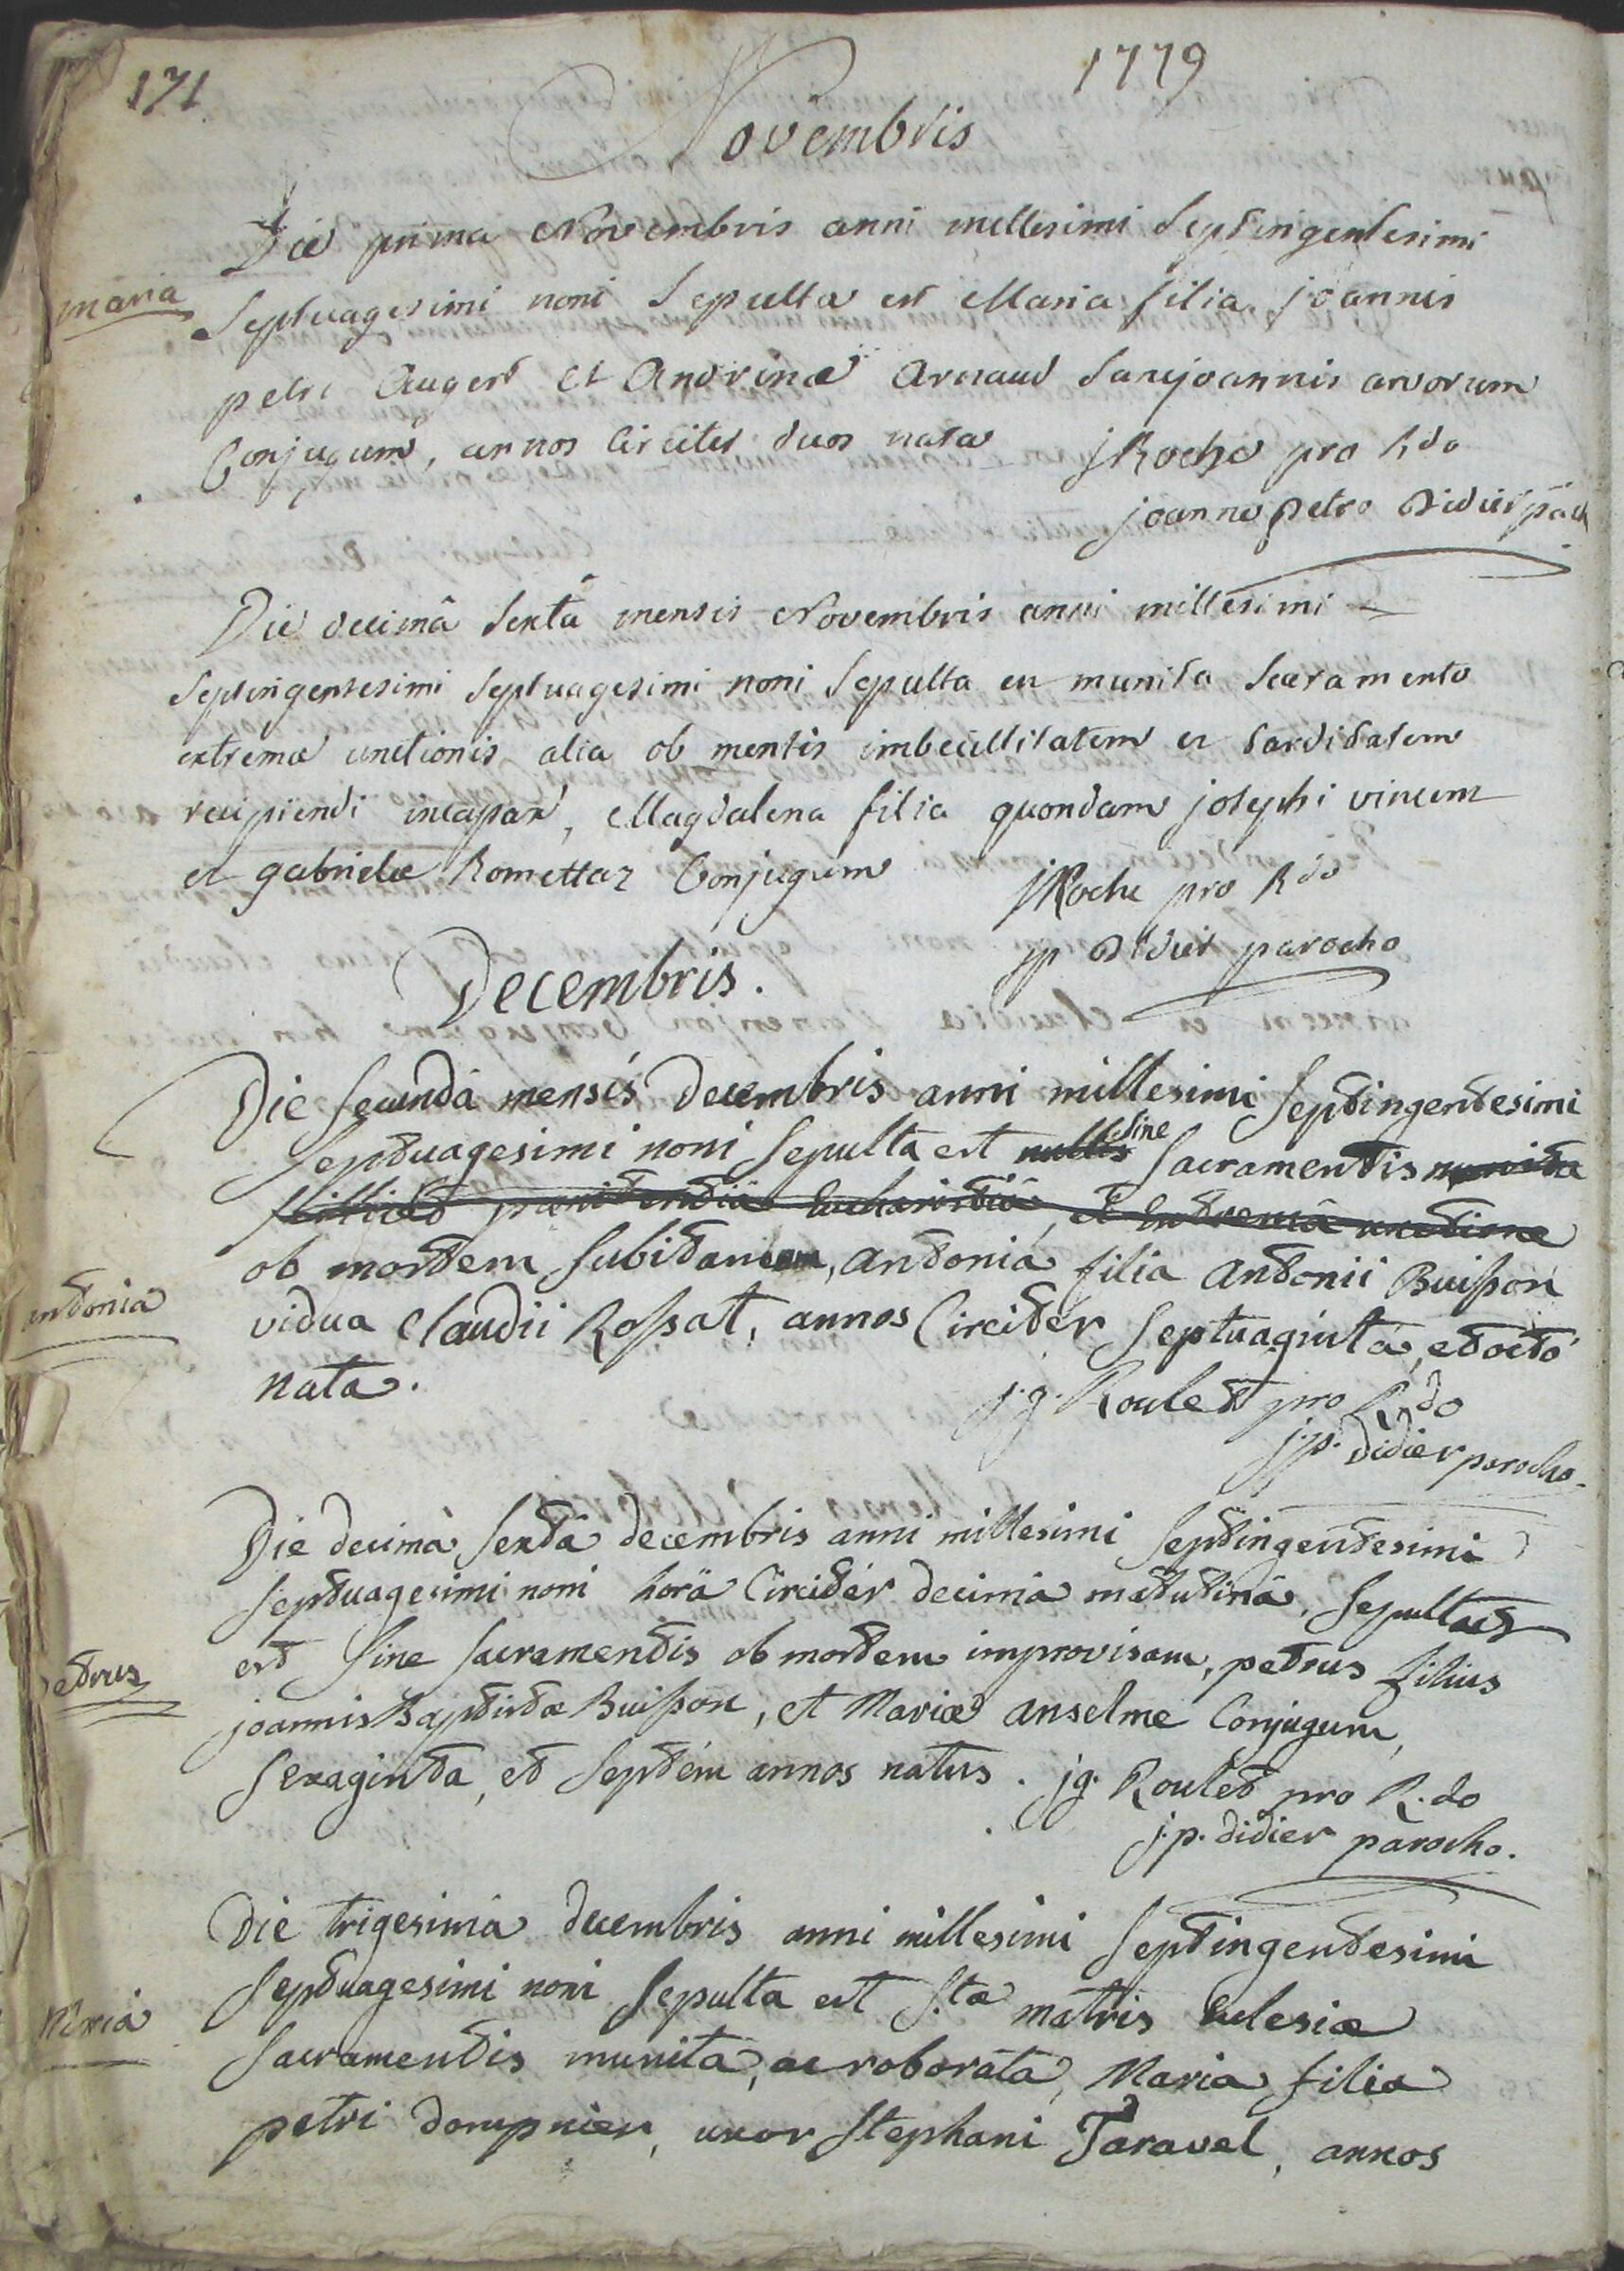 171
1779
Novembris
Die prima Novembris anni millesimi Septingentesimi
maria
Septuagesimi noni Sepulta est Maria filia joannis
petri Augert et Andrinæ Arnaud Sanjoannis arvorum
Conjugum, annos Circiter duos nata jRoche pro Rdo
joanne petro Didier
Die decimâ Sextâ mensis Novembris anni millesimi
Septingentesimi Septuagesimi noni Sepulta est munita Sacramento
extremæ unctionis alia ob mentis imbecillitatem et tarditatem
recipiendi incapax, Magdalena filia quondam josephi vincent
et gabrielæ Romettaz Conjugum
jRoche pro Rdo
jp Didier parocho
Decembris.
Die secundâ mensis Decembris anni millesimi Septingentesimi
Septuagesimi noni Sepulta est nullis sine Sacramentis munita
scilicet pœnitentiâ Eucharistiâ, et Extremâ unctione
ob mortem Subitaneam, antonia filia Antonii Buisson
antonia
vidua Claudii Rossat, annos Circiter Septuaginta, et octo
nata.
j.g. Roulet pro R.do
j.p. didier parocho.
Die decimâ Sextâ decembris anni millesimi Septingentesimi
Septuagesimi noni horâ Circiter decimâ matutinâ, Sepultus
est Sine sacramentis ob mortem improvisam, petrus filius
petrus
joannis Baptistæ Buisson, et Mariæ anselme Conjugum,
Sexaginta, et Septem annos natus. jg. Roulet pro R.do
j.p. didier parocho.
Die trigesimâ decembris anni millesimi Septingentesimi
Septuagesimi noni Sepulta est S.tæ matris Eclesiæ
Maria
Sacramentis munita, ac roborata, Maria filia
petri dompnier, uxor Stephani Taravel, annos